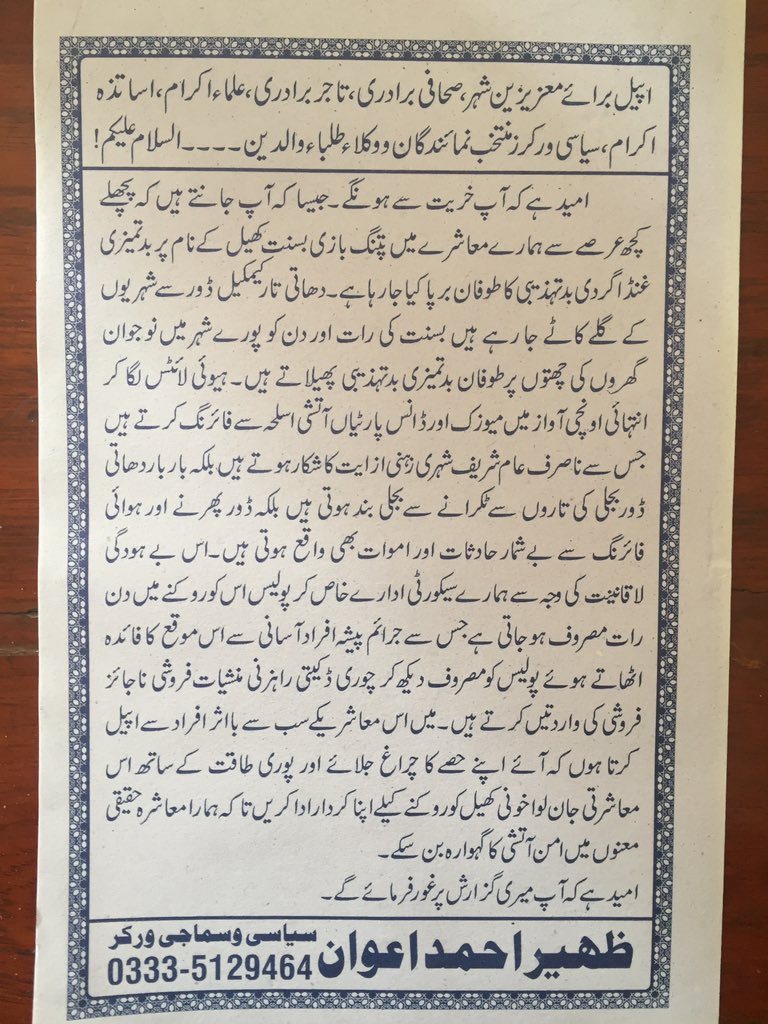 اپیل برائے معزیزین شہر، صحافی برادری، تاجر برادری، علماء اکرام، اساتذہ
اکرام، سیاسی ورکرز منتخب نمائندگان ووکلاء طلباء والدین ۔۔۔۔ السلام علیکم!
امید ہے کہ آپ خریت سے ہونگے۔ جیسا کہ آپ جانتے ہیں کہ پچھلے
کچھ عرصے سے ہمارے معاشرے میں پتنگ بازی بسنت کھیل کے نام پر بدتمیزی
غنڈاگردی بدتہذیبی کا طوفان برپا کیا جارہا ہے۔ دھاتی تار کیمکیل ڈور سے شہریوں
کے گلے کاٹے جا رہے ہیں بسنت کی رات اور دن کو پورے شہر میں نوجوان
گھروں کی چھتوں پر طوفان بدتمیزی بدتہذیبی پھیلاتے ہیں۔ ہیوئی لائٹس لگا کر
انتہائی اونچی آواز میں میوزک اور ڈانس پارٹیاں آتشی اسلحہ سے فائرنگ کرتے ہیں
جس سے ناصرف عام شریف شہری زہنی ازایت کا شکار ہوتے ہیں بلکہ بار بار دھاتی
ڈور بجلی کی تاروں سے ٹکرانے سے بجلی بند ہوتی ہیں بلکہ ڈور پھرنے اور ہوائی
فائرنگ سے بے شمار حادثات اور اموات بھی واقع ہوتی ہیں۔ اس بے ہودگی
لاقانیت کی وجہ سے ہمارے سیکورٹی ادارے خاص کر پولیس اس کو روکنے میں دن
رات مصروف ہو جاتی ہے جس سے جرائم پیشہ افراد آسانی سے اس موقع کا فائدہ
اٹھاتے ہوئے پولیس کو مصروف دیکھ کر چوری ڈکیتی راہزنی منشیات فروشی ناجائز
فروشی کی واردتیں کرتے ہیں۔ میں اس معاشریکے سب سے بااثر افراد سے اپیل
کرتا ہوں کہ آئے اپنے حصے کا چراغ جلائے اور پوری طاقت کے ساتھ اس
معاشرتی جان لوا خونی کھیل کو روکنے کیلے اپنا کردار ادا کریں تا کہ ہمارا معاشرہ حقیقی
معنوں میں امن آتشی کا گہوارہ بن سکے۔
امید ہے کہ آپ میری گزارش پر غور فرمائے گے۔
ظہیر احمد اعوان سیاسی وسماجی ورکر
0333-5129464